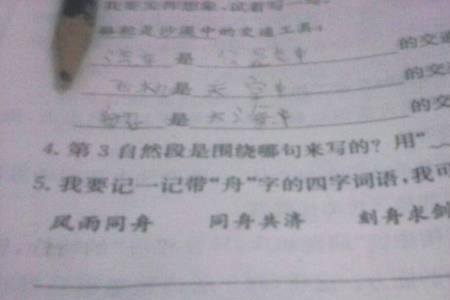 我要发挥想象,试着写一写。
骆驼是沙漠中的交通工具。
汽车 是 公路中 的交通
飞机 是 天空中 的交
是 大海中 的交
4. 第 3 自然段是围绕哪句来写的？用“
5. 我要记一记带“舟”字的四字词语,我可
风雨同舟 同舟共济 刻舟求剑